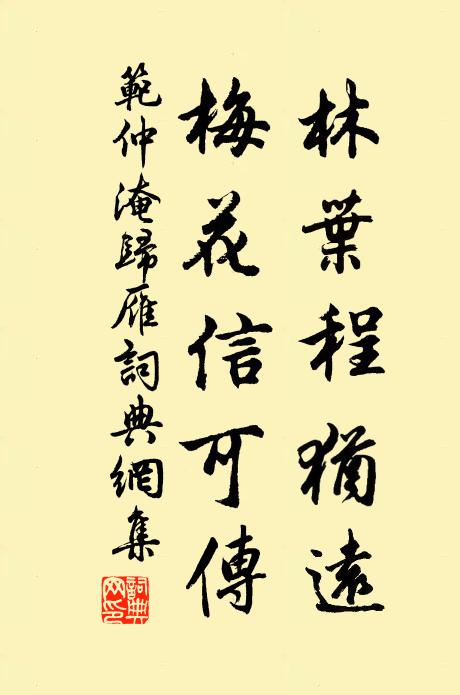 林葉程猶遠
梅花信可傳
範仲淹歸雁詞典網集
詞典网印